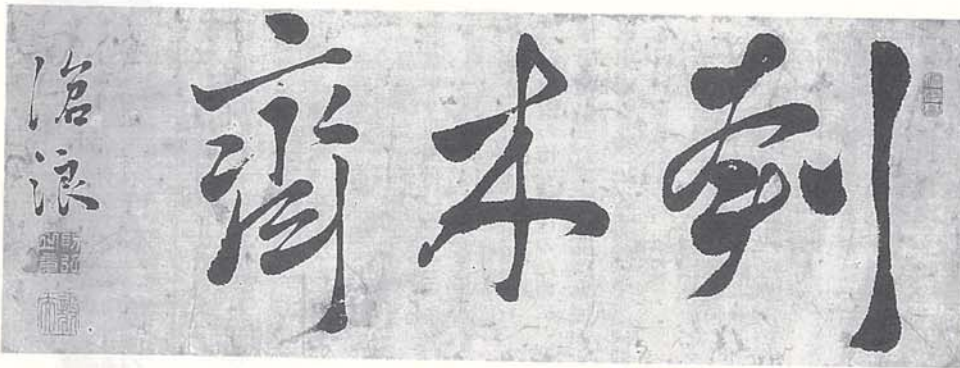 刳木齋
滄浪